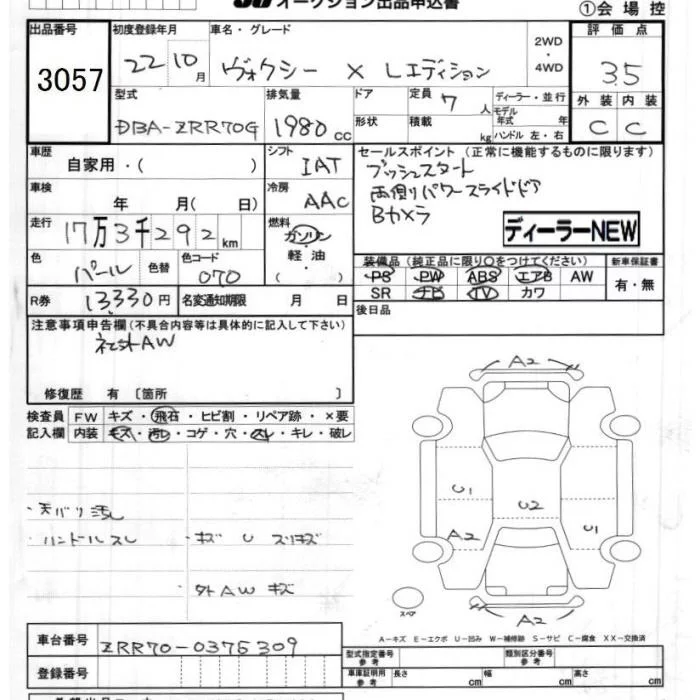 オークション出品申込書
①会 場 控
出品番号 初度登録年月 車名・グレード 2WD ・ 4WD 評 価 点
3057 22 10月 ヴォクシー X Lエディション 3.5
型式 排気量 ドア 定員 7人 ディーラー・並行 外 装 内 装
DBA-ZRR70G 1980cc 形状 積載 kg モデル年式 年 ハンドル 左・右 C C
車歴 シフト セールスポイント (正常に機能するものに限ります)
自家用・( ) IAT プッシュスタート
車検 冷房 両側パワースライドドア
年 月( 日) AAC Bカメラ
走行 17万3千292km 燃料 ガソリン ディーラーNEW
色 パール 色替 色コード 070 軽油 ・ ( )
装備品(純正品に限り○をつけてください) 新車保証書
PS PW ABS エアB AW 有・無
R券 13,330円 名変通知期限 月 日 SR ナビ TV カワ
注意事項申告欄(不具合内容等は具体的に記入して下さい) 後日品
社外AW
修復歴 有 〔箇所 〕
検査員 FW キズ・飛石・ヒビ割・リペア跡・×要
記入欄 内装 キズ・汚レ・コゲ・穴・スレ・キレ・破レ
A2
U1 U2 U1
A2
・天バリ汚レ
・ハンドルスレ ・キズ U スリキズ
・外AW キズ
A2
スペア
A－キズ E－エクボ U－凹み W－補修跡 S－サビ C－腐食 XX－交換済
車台番号 ZRR70-0375309
型式指定番号 参考 類別区分番号 参考
登録番号 車庫証明用 参考 長さ cm 幅 cm 高さ cm